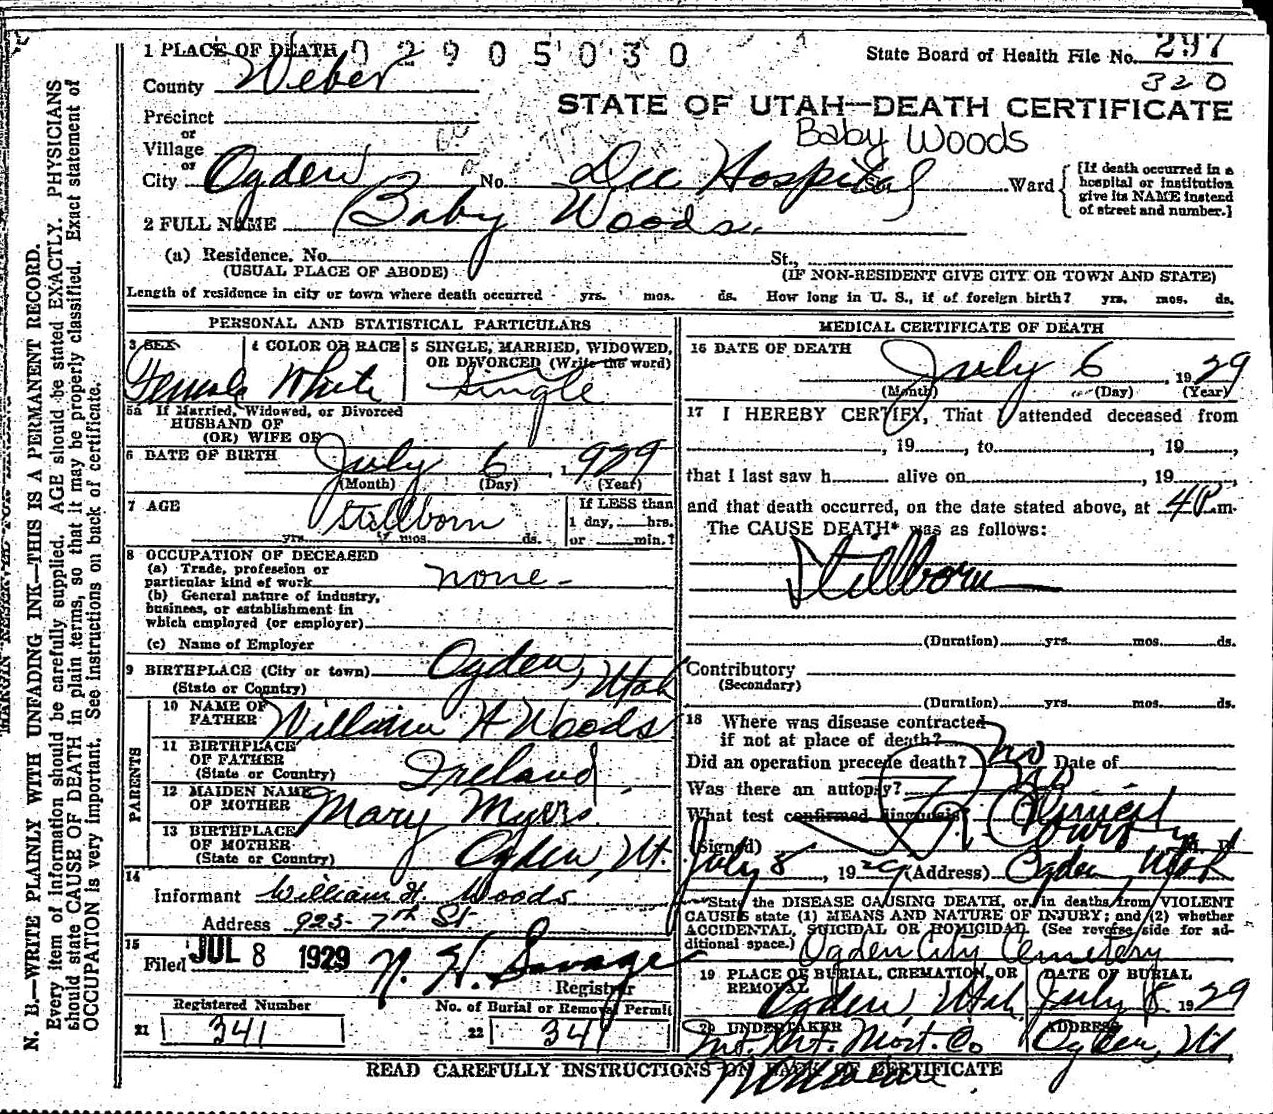 1 PLACE OF DEATH 02905030 State Board of Health File No. 297
County Weber 320
STATE OF UTAH—DEATH CERTIFICATE
Precinct
or
Village Baby Woods
or
City Ogden No. Dee Hospital St. Ward [If death occurred in a hospital or institution give its NAME instead of street and number.]
2 FULL NAME Baby Woods.
(a) Residence. No. St.,
(USUAL PLACE OF ABODE) (IF NON-RESIDENT GIVE CITY OR TOWN AND STATE)
Length of residence in city or town where death occurred yrs. mos. ds. How long in U. S., if of foreign birth? yrs. mos. ds.
PERSONAL AND STATISTICAL PARTICULARS
3 SEX 4 COLOR OR RACE 5 SINGLE, MARRIED, WIDOWED,
OR DIVORCED (Write the word)
Female White Single
5a If Married, Widowed, or Divorced
HUSBAND OF
(OR) WIFE OF
6 DATE OF BIRTH July 6, 1929
(Month) (Day) (Year)
7 AGE Stillborn If LESS than
1 day, hrs.
yrs. mos. ds. or min.?
8 OCCUPATION OF DECEASED
(a) Trade, profession or
particular kind of work none -
(b) General nature of industry,
business, or establishment in
which employed (or employer)
(c) Name of Employer
9 BIRTHPLACE (City or town) Ogden, Utah
(State or Country)
PARENTS
10 NAME OF
FATHER William H Woods
11 BIRTHPLACE
OF FATHER
(State or Country) Ireland
12 MAIDEN NAME
OF MOTHER Mary Myers
13 BIRTHPLACE
OF MOTHER
(State or Country) Ogden, Ut.
14
Informant William H. Woods
Address 925- 7th St
15
Filed JUL 8 1929 N. H. Savage
Registrar
Registered Number No. of Burial or Removal Permit
21 341 22 341
MEDICAL CERTIFICATE OF DEATH
16 DATE OF DEATH
July 6, 1929
(Month) (Day) (Year)
17 I HEREBY CERTIFY, That I attended deceased from
, 19 , to , 19 ,
that I last saw h alive on , 19
and that death occurred, on the date stated above, at 4 P m.
The CAUSE DEATH* was as follows:
Stillborn
(Duration) yrs. mos. ds.
Contributory
(Secondary)
(Duration) yrs. mos. ds.
18 Where was disease contracted
if not at place of death?
Did an operation precede death? No Date of
Was there an autopsy? No
What test confirmed diagnosis? Clinical
(Signed) M. D.
July 8, 1929 (Address) Ogden Utah
State the DISEASE CAUSING DEATH, or, in deaths from VIOLENT
CAUSES state (1) MEANS AND NATURE OF INJURY; and (2) whether
ACCIDENTAL, SUICIDAL OR HOMICIDAL. (See reverse side for ad-
ditional space.) Ogden City Cemetery
19 PLACE OF BURIAL, CREMATION, OR DATE OF BURIAL
REMOVAL Ogden, Utah July 8 1929
20 UNDERTAKER ADDRESS
Mort. Co Ogden, Ut
READ CAREFULLY INSTRUCTIONS ON BACK OF CERTIFICATE
N. B.—WRITE PLAINLY WTH UNFADING INK—THIS IS A PERMANENT RECORD.
Every item of information should be carefully supplied. AGE should be stated EXACTLY. PHYSICIANS
should state CAUSE OF DEATH in plain terms, so that it may be properly classified. Exact statement of
OCCUPATION is very important. See instructions on back of certificate.